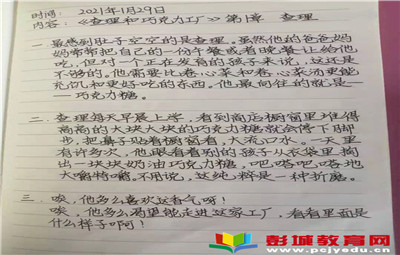 时间: 2021年1月29日
内容:《查理和巧克力工厂》第1章 查理
一.最感到肚子空空的是查理。虽然他的爸爸妈
妈常常把自己的一份午餐或者晚餐让给他
吃,但对一个正在发育的孩子来说,这还是
不够的。他需要比卷心菜和卷心菜汤更能
充饥和更好吃的东西。他最向往的就是—
—巧克力糖。
二.查理每天早晨上学,看到商店橱窗里堆得
高高的大块大块的巧克力糖就会停下脚
步,把鼻子贴着橱窗看,大流口水。一天里
有许多次,他眼看着别的孩子从衣袋里掏
出一块块奶油巧克力糖,吧嗒吧嗒地
大嚼特嚼。不用说,这纯粹是一种折磨。
三.唉,他多么喜欢这香气呀!
唉,他多么渴望能走进这家工厂,看看里面是
什么样子啊!
彭城教育网
www.pcjyedu.cn